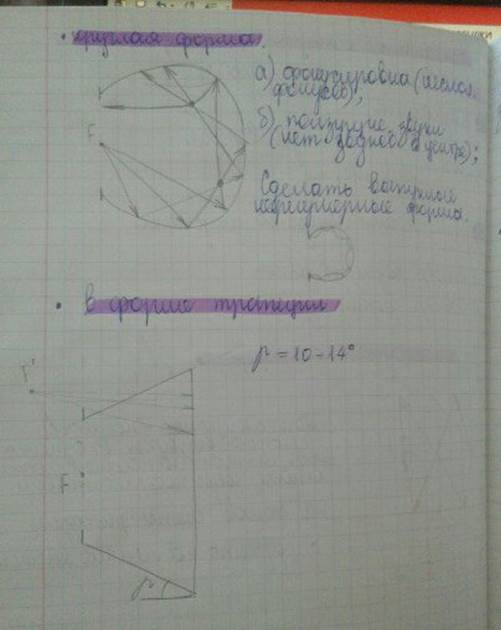 • круглая форма.
а) фокусировка (несколь
фокусов);
F
б) ползущие звуки
(нет звуков в центре);
Сделать выпуклые
нерегулярные формы.
• в форме трапеции
γ = 10-14°
F'
F
γ